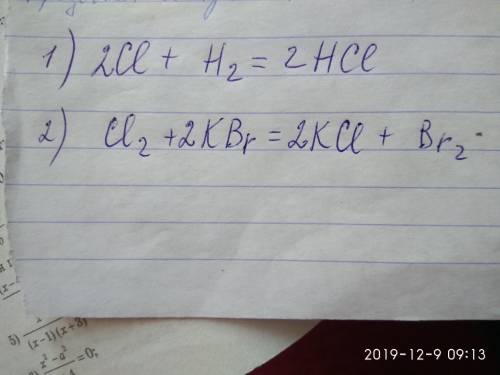 1) 2Cl + H₂ = 2HCl
2) Cl₂ + 2KBr = 2KCl + Br₂
5)
(x-1)(x+3)
x²-a²
=0;
2019-12-9 09:13